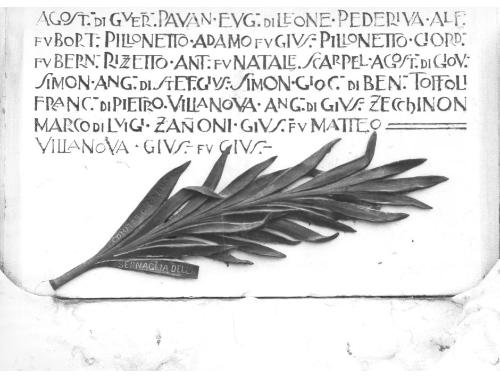 AGOST. DI GUER. PAVAN · EUG. DI LEONE · PEDERIVA · ALF.
FU BORT. PILLONETTO · ADAMO FU GIUS. PILLONETTO · GIORD.
FU BERN. RIZETTO · ANT. FU NATALE · SCARPEL · AGOST. DI GIOV.
SIMON · ANG. DI STEF. GIUS. SIMON · GIOC. DI BEN. TOFFOLI
FRANC. DI PIETRO · VILLANOVA · ANG. DI GIUS. ZECCHINON
MARCO DI LUIGI · ZAÑONI · GIUS. FU MATTEO
VILLANOVA · GIUS. FU GIUS.
SERNAGLIA DELLA